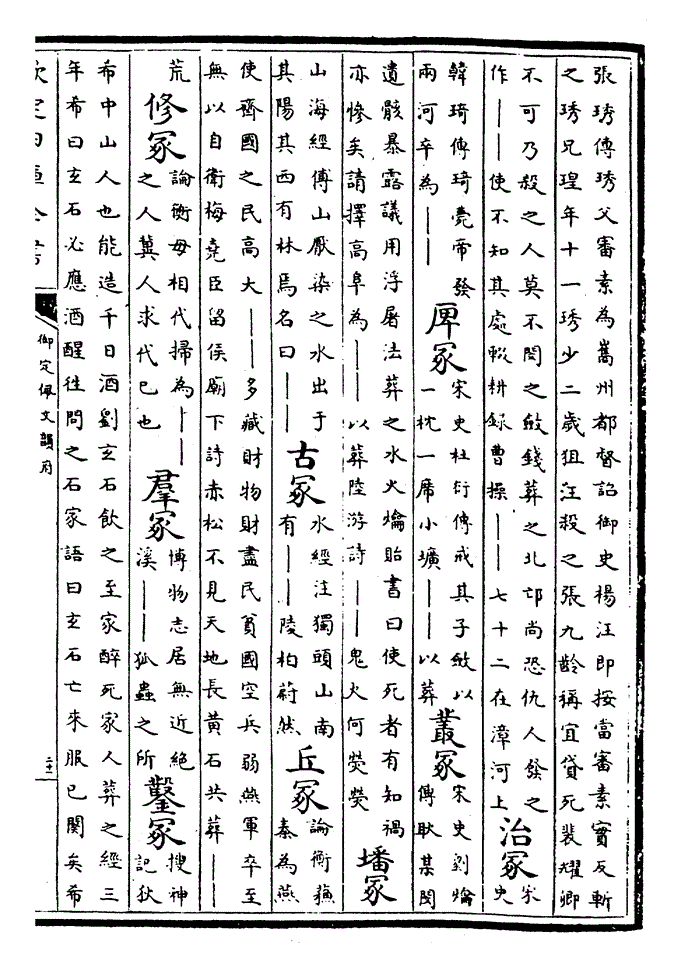 張琇傳琇父審素為嶲州都督詔御史楊汪即按當審素實反斬
之琇兄瑝年十一琇少二歲狙汪殺之張九齡稱宜貸死裴耀卿
不可乃殺之人莫不閔之斂錢葬之北邙尚恐仇人發之
作——使不知其處輟耕録曹操——七十二在漳河上
治冢
宋
史
韓琦傳琦薨帝發
兩河卒為——
庳冢
宋史杜衍傳戒其子斂以
一枕一席小壙——以葬
叢冢
宋史劉爚
傳耿某閔
遺骸暴露議用浮屠法葬之水火爚貽書曰使死者有知禍
亦慘矣請擇高阜為——以葬陸游詩——鬼火何熒熒
墦冢
山海經傅山厭染之水出于
其陽其西有林焉名曰——
古冢
水經注獨頭山南
有——陵柏蔚然
丘冢
論衡蘇
秦為燕
使齊國之民高大——多藏財物財盡民貧國空兵弱燕軍卒至
無以自衛梅堯臣留侯廟下詩赤松不見天地長黄石共葬——
荒
修冢
論衡毋相代掃為——
之人冀人求代已也
羣冢
博物志居無近絶
溪——狐蟲之所
鑿冢
搜神
記狄
希中山人也能造千日酒劉玄石飲之至家醉死家人葬之經三
年希曰玄石必應酒醒往問之石家語曰玄石亡來服已闋矣希
欽定四庫全書
御定佩文韻府